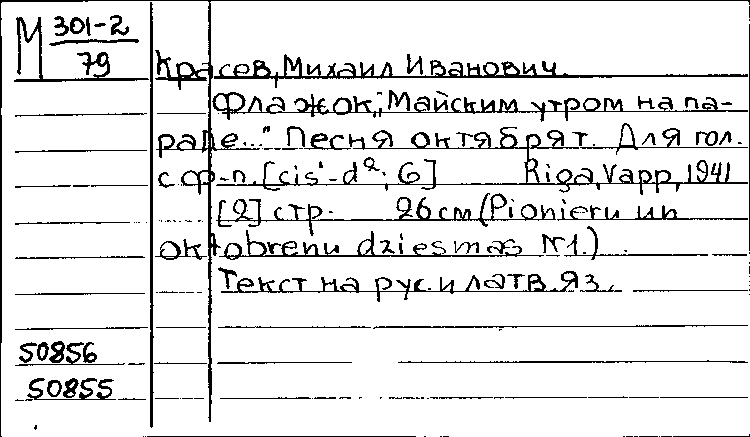 М 301-2
79
Красев, Михаил Иванович.
Флажок. "Майским утром на па-
раде..." Песня октябрят. Для гол.
с ф-п. [cis¹-d²; G] Riga, Vapp, 1941
[2] стр. 26 см (Pionieru un
oktobrenu dziesmas №1.)
Текст на рус. и латв. яз.
50856
50855